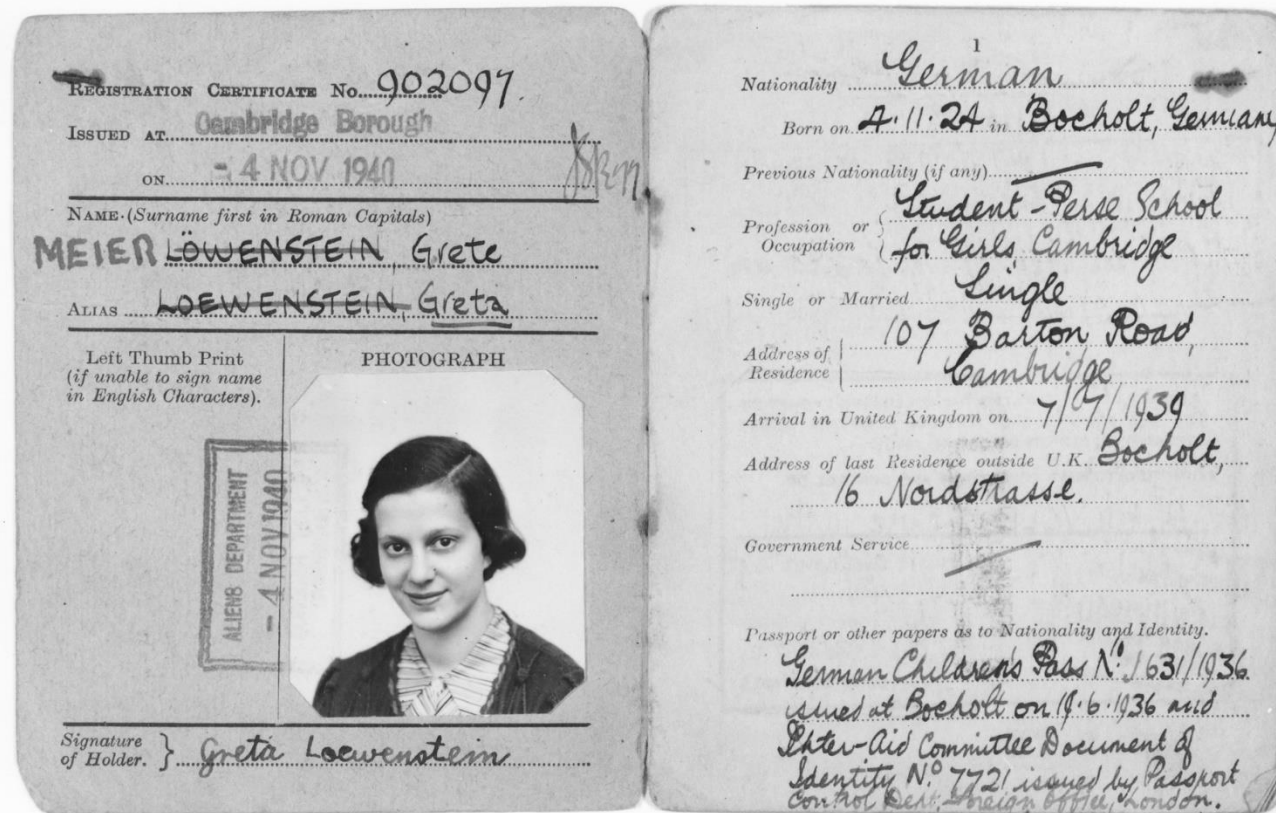 REGISTRATION CERTIFICATE No. 902097.
ISSUED AT Cambridge Borough
ON - 4 NOV 1940
NAME (Surname first in Roman Capitals)
MEIER LÖWENSTEIN, Grete
ALIAS LOEWENSTEIN, Greta
Left Thumb Print
(if unable to sign name
in English Characters).
PHOTOGRAPH
ALIENS DEPARTMENT
- 4 NOV 1940
Signature
of Holder. } Greta Loewenstein
1
Nationality German
Born on 4.11.24 in Bocholt, Germany
Previous Nationality (if any)
Profession or Occupation { Student - Perse School
for Girls, Cambridge
Single or Married Single
Address of Residence { 107 Barton Road,
Cambridge
Arrival in United Kingdom on 7/7/1939
Address of last Residence outside U.K. Bocholt,
16 Nordstrasse.
Government Service
Passport or other papers as to Nationality and Identity.
German Children's Pass No. 1631/1936
issued at Bocholt on 19.6.1936 and
Inter-Aid Committee Document of
Identity No. 7721 issued by Passport
Control Dept. Foreign Office, London.